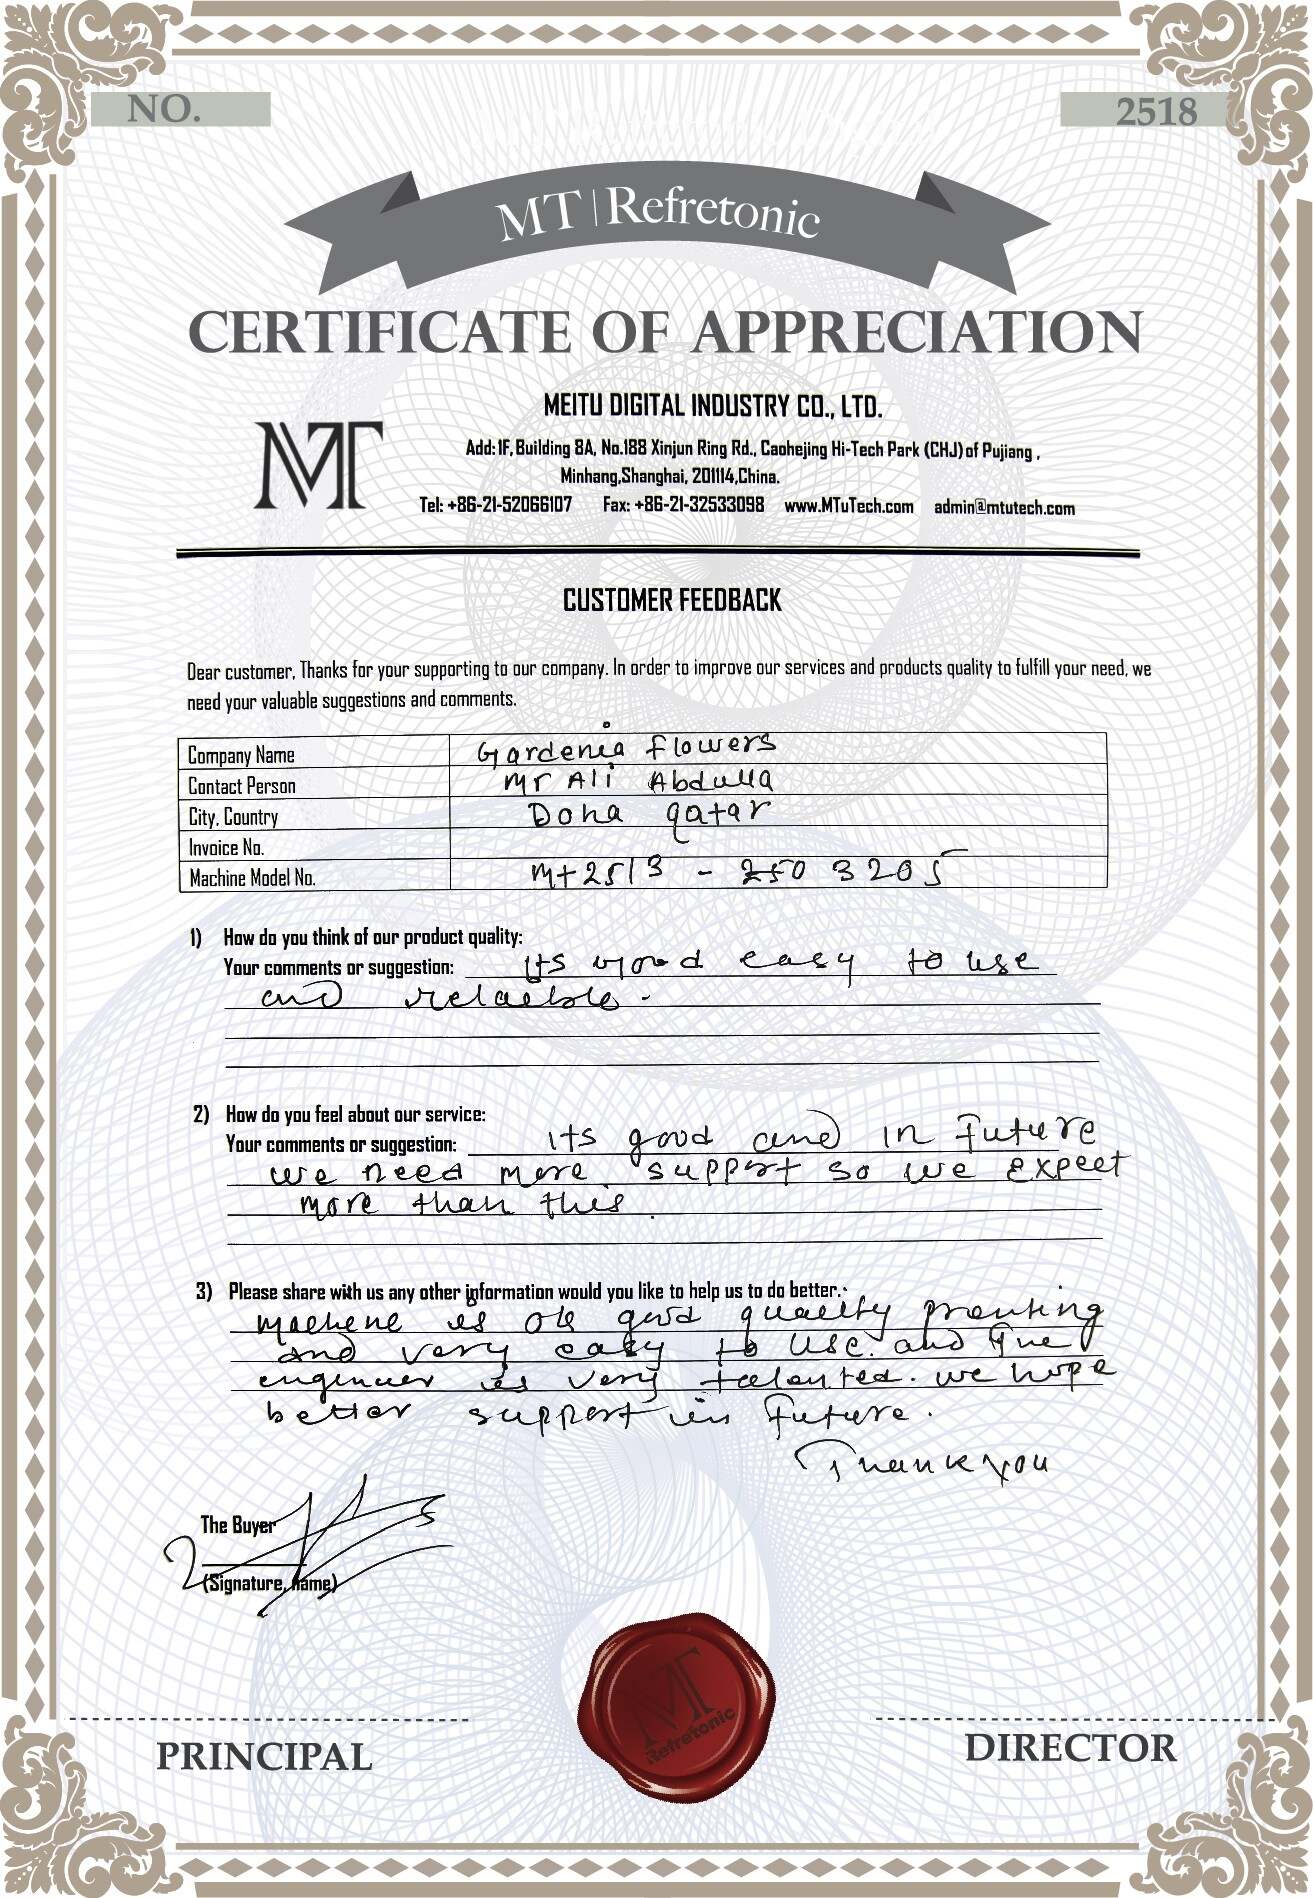 NO.
2518
MT | Refretonic
CERTIFICATE OF APPRECIATION
MT
MEITU DIGITAL INDUSTRY CO., LTD.
Add: 1F, Building 8A, No.188 Xinjun Ring Rd., Caohejing Hi-Tech Park (CHJ) of Pujiang ,
Minhang,Shanghai, 201114,China.
Tel: +86-21-52066107 Fax: +86-21-32533098 www.MTuTech.com admin@mtutech.com
CUSTOMER FEEDBACK
Dear customer, Thanks for your supporting to our company. In order to improve our services and products quality to fulfill your need, we
need your valuable suggestions and comments.
Company Name Gardenia flowers
Contact Person Mr Ali Abdulla
City, Country Doha qatar
Invoice No.
Machine Model No. Mt2513 - 2503205
1) How do you think of our product quality:
Your comments or suggestion: its good easy to use
and relaeble.
2) How do you feel about our service:
Your comments or suggestion: its good and in future
we need more support so we expect
more than this.
3) Please share with us any other information would you like to help us to do better.
machene is ok good quality prenting
and very easy to use. and the
enginuer is very talented. we hope
better support in future.
Thank you
The Buyer
(Signature, name)
MT
Refretonic
PRINCIPAL
DIRECTOR